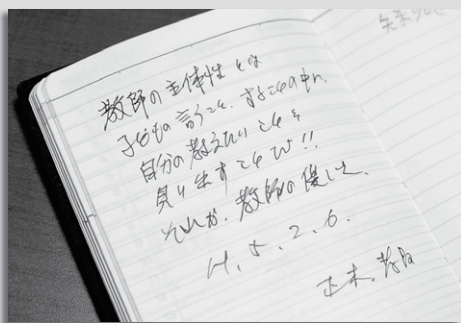 教師の主体性とは
子どもの言うこと、することの中に、
自分の教えたいことを
見い出すことだ!!
それが、教師の優しさ
H.5.2.6.
正木